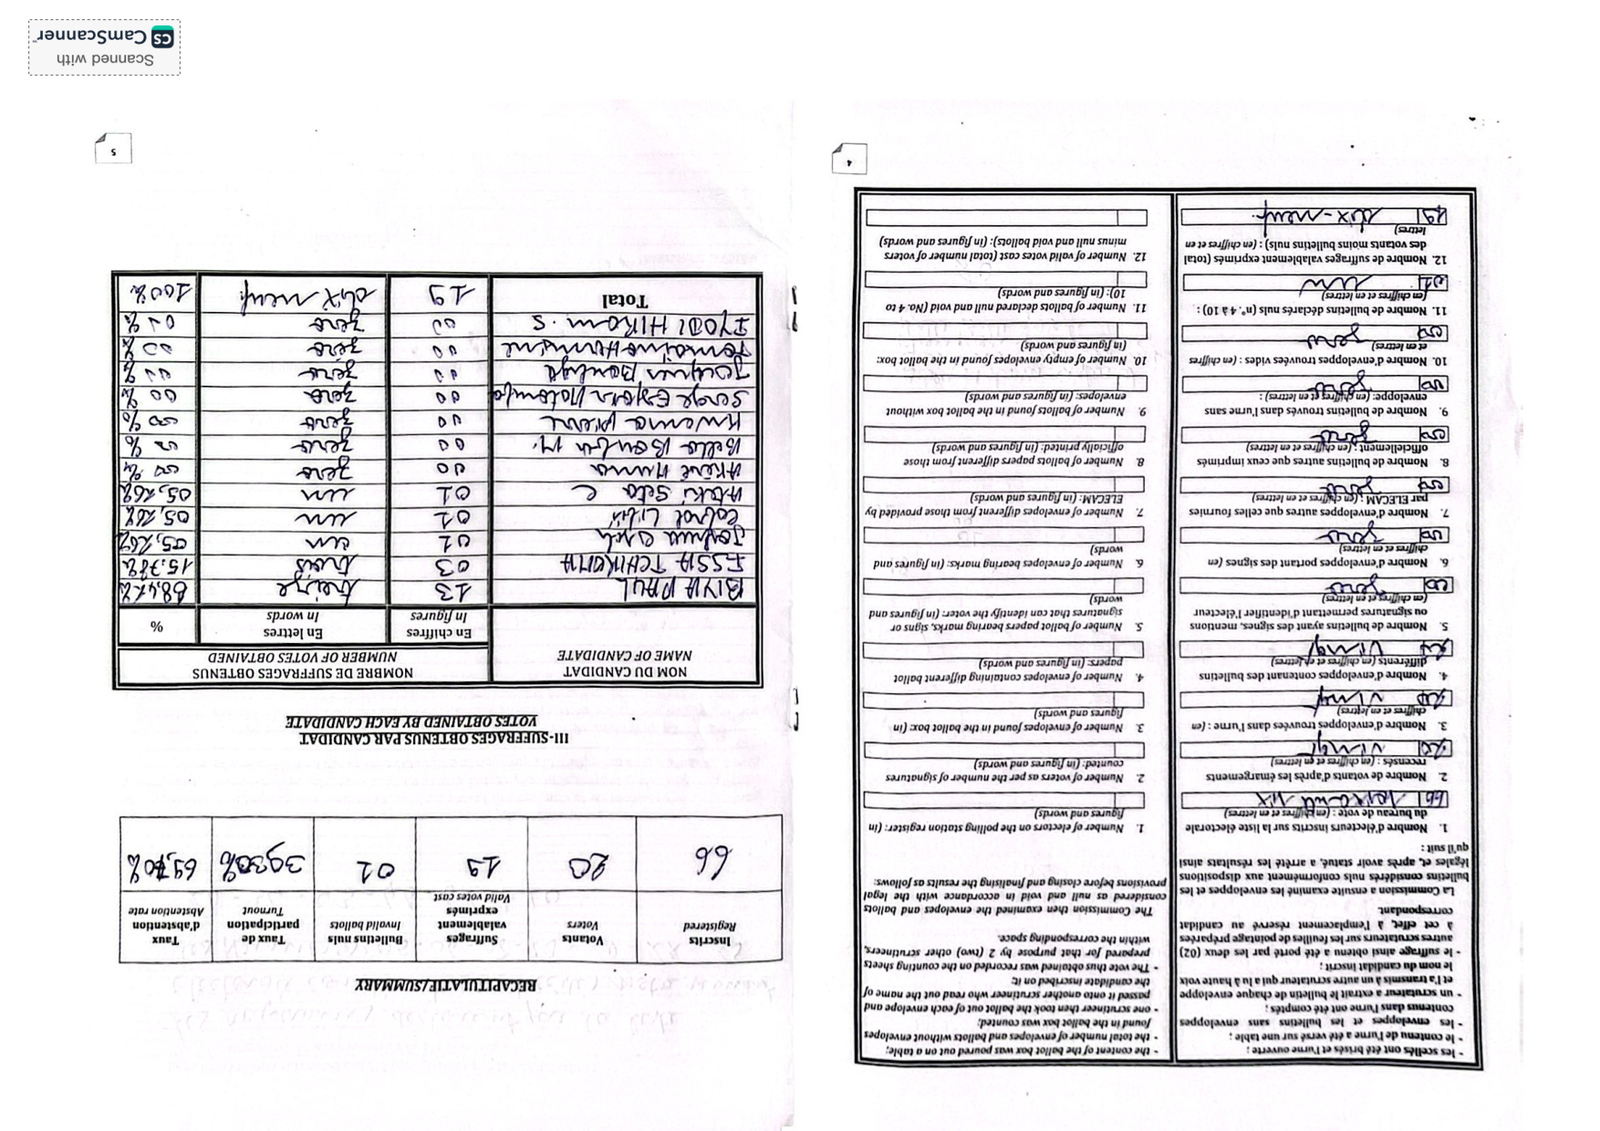 - les scellés ont été brisés et l'urne ouverte ;
- le contenu de l'urne a été versé sur une table ;
- les enveloppes et les bulletins sans enveloppes
contenus dans l'urne ont été comptés ;
- un scrutateur a extrait le bulletin de chaque enveloppe
et l'a transmis à un autre scrutateur qui l'a lu à haute voix
le nom du candidat inscrit ;
- le suffrage ainsi obtenu a été porté par les deux (02)
autres scrutateurs sur les feuilles de pointage préparées
à cet effet, à l'emplacement réservé au candidat
correspondant.
La Commission a ensuite examiné les enveloppes et les
bulletins considérés nuls conformément aux dispositions
légales et, après avoir statué, a arrêté les résultats ainsi
qu'il suit :
1. Nombre d'électeurs inscrits sur la liste électorale
du bureau de vote : (en chiffres et en lettres)
66 soixante six
2. Nombre de votants d'après les émargements
recensés : (en chiffres et en lettres)
20 vingt
3. Nombre d'enveloppes trouvées dans l'urne : (en
chiffres et en lettres)
20 vingt
4. Nombre d'enveloppes contenant des bulletins
différents (en chiffres et en lettres)
vingt
5. Nombre de bulletins ayant des signes, mentions
ou signatures permettant d'identifier l'électeur
(en chiffres et en lettres)
00 zero
6. Nombre d'enveloppes portant des signes (en
chiffres et en lettres)
00 zero
7. Nombre d'enveloppes autres que celles fournies
par ELECAM : (en chiffres et en lettres)
00 zero
8. Nombre de bulletins autres que ceux imprimés
officiellement : (en chiffres et en lettres)
00 zero
9. Nombre de bulletins trouvés dans l'urne sans
enveloppe: (en chiffres et en lettres) :
00 zero
10. Nombre d'enveloppes trouvées vides : (en chiffres
et en lettres)
00 zero
11. Nombre de bulletins déclarés nuls (n°. 4 à 10) :
(en chiffres et en lettres)
01 un
12. Nombre de suffrages valablement exprimés (total
des votants moins bulletins nuls) : (en chiffres et en
lettres)
19 dix-neuf
- the content of the ballot box was poured out on a table;
- the total number of envelopes and ballots without envelopes
found in the ballot box was counted;
- one scrutineer then took the ballot out of each envelope and
passed it onto another scrutineer who read out the name of
the candidate inscribed on it;
- The vote thus obtained was recorded on the counting sheets
prepared for that purpose by 2 (two) other scrutineers,
within the corresponding space.
The Commission then examined the envelopes and ballots
considered as null and void in accordance with the legal
provisions before closing and finalising the results as follows:
1. Number of electors on the polling station register: (in
figures and words)
2. Number of voters as per the number of signatures
counted: (in figures and words)
3. Number of envelopes found in the ballot box: (in
figures and words)
4. Number of envelopes containing different ballot
papers: (in figures and words)
5. Number of ballot papers bearing marks, signs or
signatures that can identify the voter: (in figures and
words)
6. Number of envelopes bearing marks: (in figures and
words)
7. Number of envelopes different from those provided by
ELECAM: (in figures and words)
8. Number of ballots papers different from those
officially printed: (in figures and words)
9. Number of ballots found in the ballot box without
envelopes: (in figures and words)
10. Number of empty envelopes found in the ballot box:
(in figures and words)
11. Number of ballots declared null and void (No. 4 to
10): (in figures and words)
12. Number of valid votes cast (total number of voters
minus null and void ballots): (in figures and words)
4
RECAPITULATIF/SUMMARY
Inscrits Registered | Votants Voters | Suffrages valablement exprimés Valid votes cast | Bulletins nuls Invalid ballots | Taux de participation Turnout | Taux d'abstention Abstention rate
66 | 20 | 19 | 01 | 30,30% | 69,70%
III-SUFFRAGES OBTENUS PAR CANDIDAT
VOTES OBTAINED BY EACH CANDIDATE
NOM DU CANDIDAT NAME OF CANDIDATE | NOMBRE DE SUFFRAGES OBTENUS NUMBER OF VOTES OBTAINED
En chiffres In figures | En lettres In words | %
BIYA PAUL | 13 | treize | 68,42%
ISSA TCHIROMA | 03 | trois | 15.78%
Joshua Osih | 01 | un | 05,26%
Cabral Libii | 01 | un | 05,26%
Ateki Seta C | 01 | un | 05,26%
00 | zero | 00 %
Bello Bouba M. | 00 | zero | 00 %
Kwemo Pierre | 00 | zero | 00%
Serge Espoir Matomba | 00 | zero | 00 %
00 | zero | 00 %
00 | zero | 00 %
IYODI HIRAM. S | 00 | zero | 00 %
Total | 19 | dix neuf | 100%
5
Scanned with
CS CamScanner